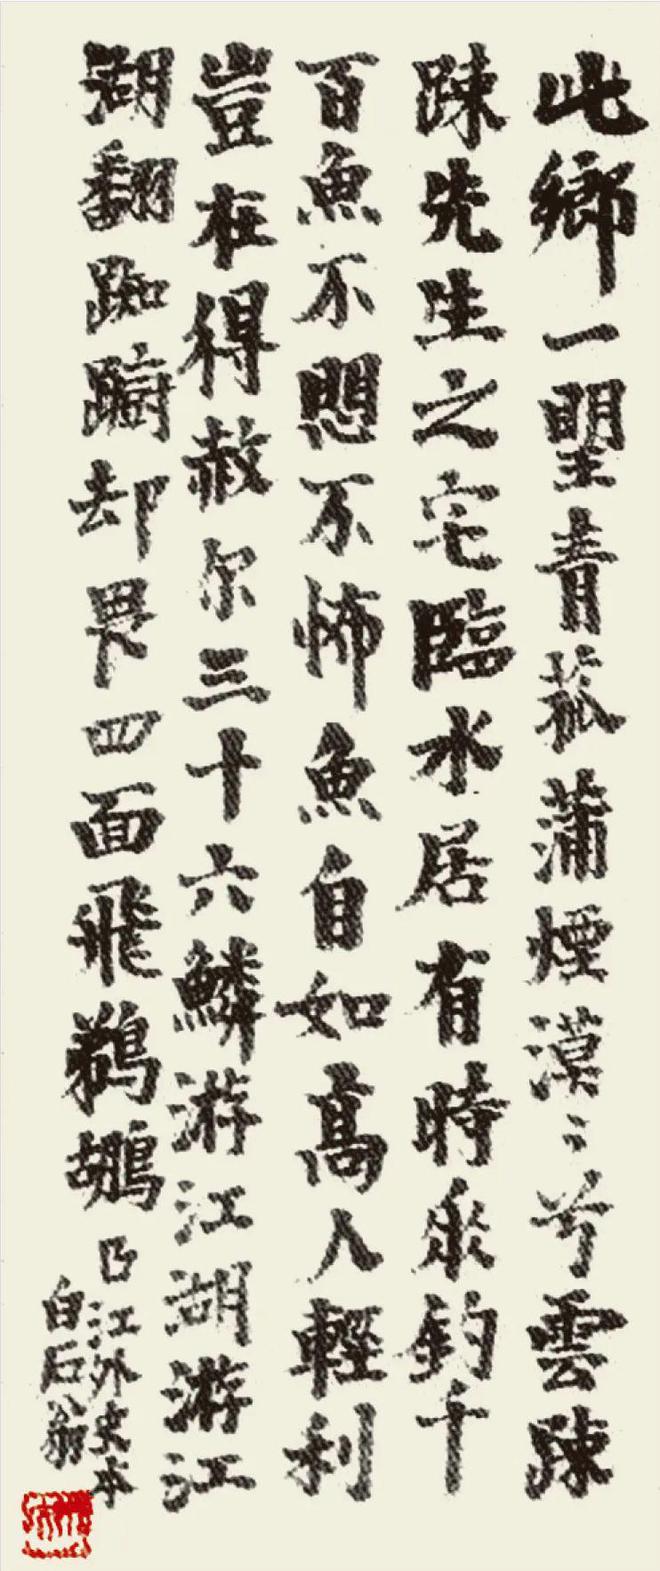 此鄉一望青菰蒲煙漠〻兮雲踈
踈先生之宅臨水居有時釣千
百魚不愳不怖魚自如高人輕利
豈在得赦尔三十六鱗游江湖游江
湖翻踟躕却畏四面飛鵜鶘
江外史本
白石翁